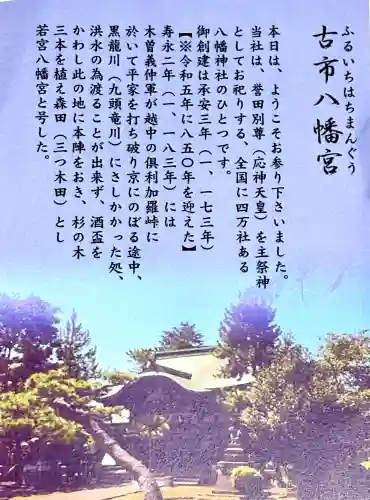 ふるいちはちまんぐう
古市八幡宮
本日は、ようこそお参り下さいました。
当社は、誉田別尊（応神天皇）を主祭神
としてお祀りする、全国に四万社ある
八幡神社のひとつです。
御創建は承安三年（一、一七三年）
【※令和五年に八五〇年を迎えた】
寿永二年（一、一八三年）には
木曽義仲軍が越中の倶利加羅峠に
於いて平家を打ち破り京にのぼる途中、
黒龍川（九頭竜川）にさしかかった処、
洪水の為渡ることが出来ず、酒盃を
かわし此の地に本陣をおき、杉の木
三本を植え森田（三つ木田）とし
若宮八幡宮と号した。